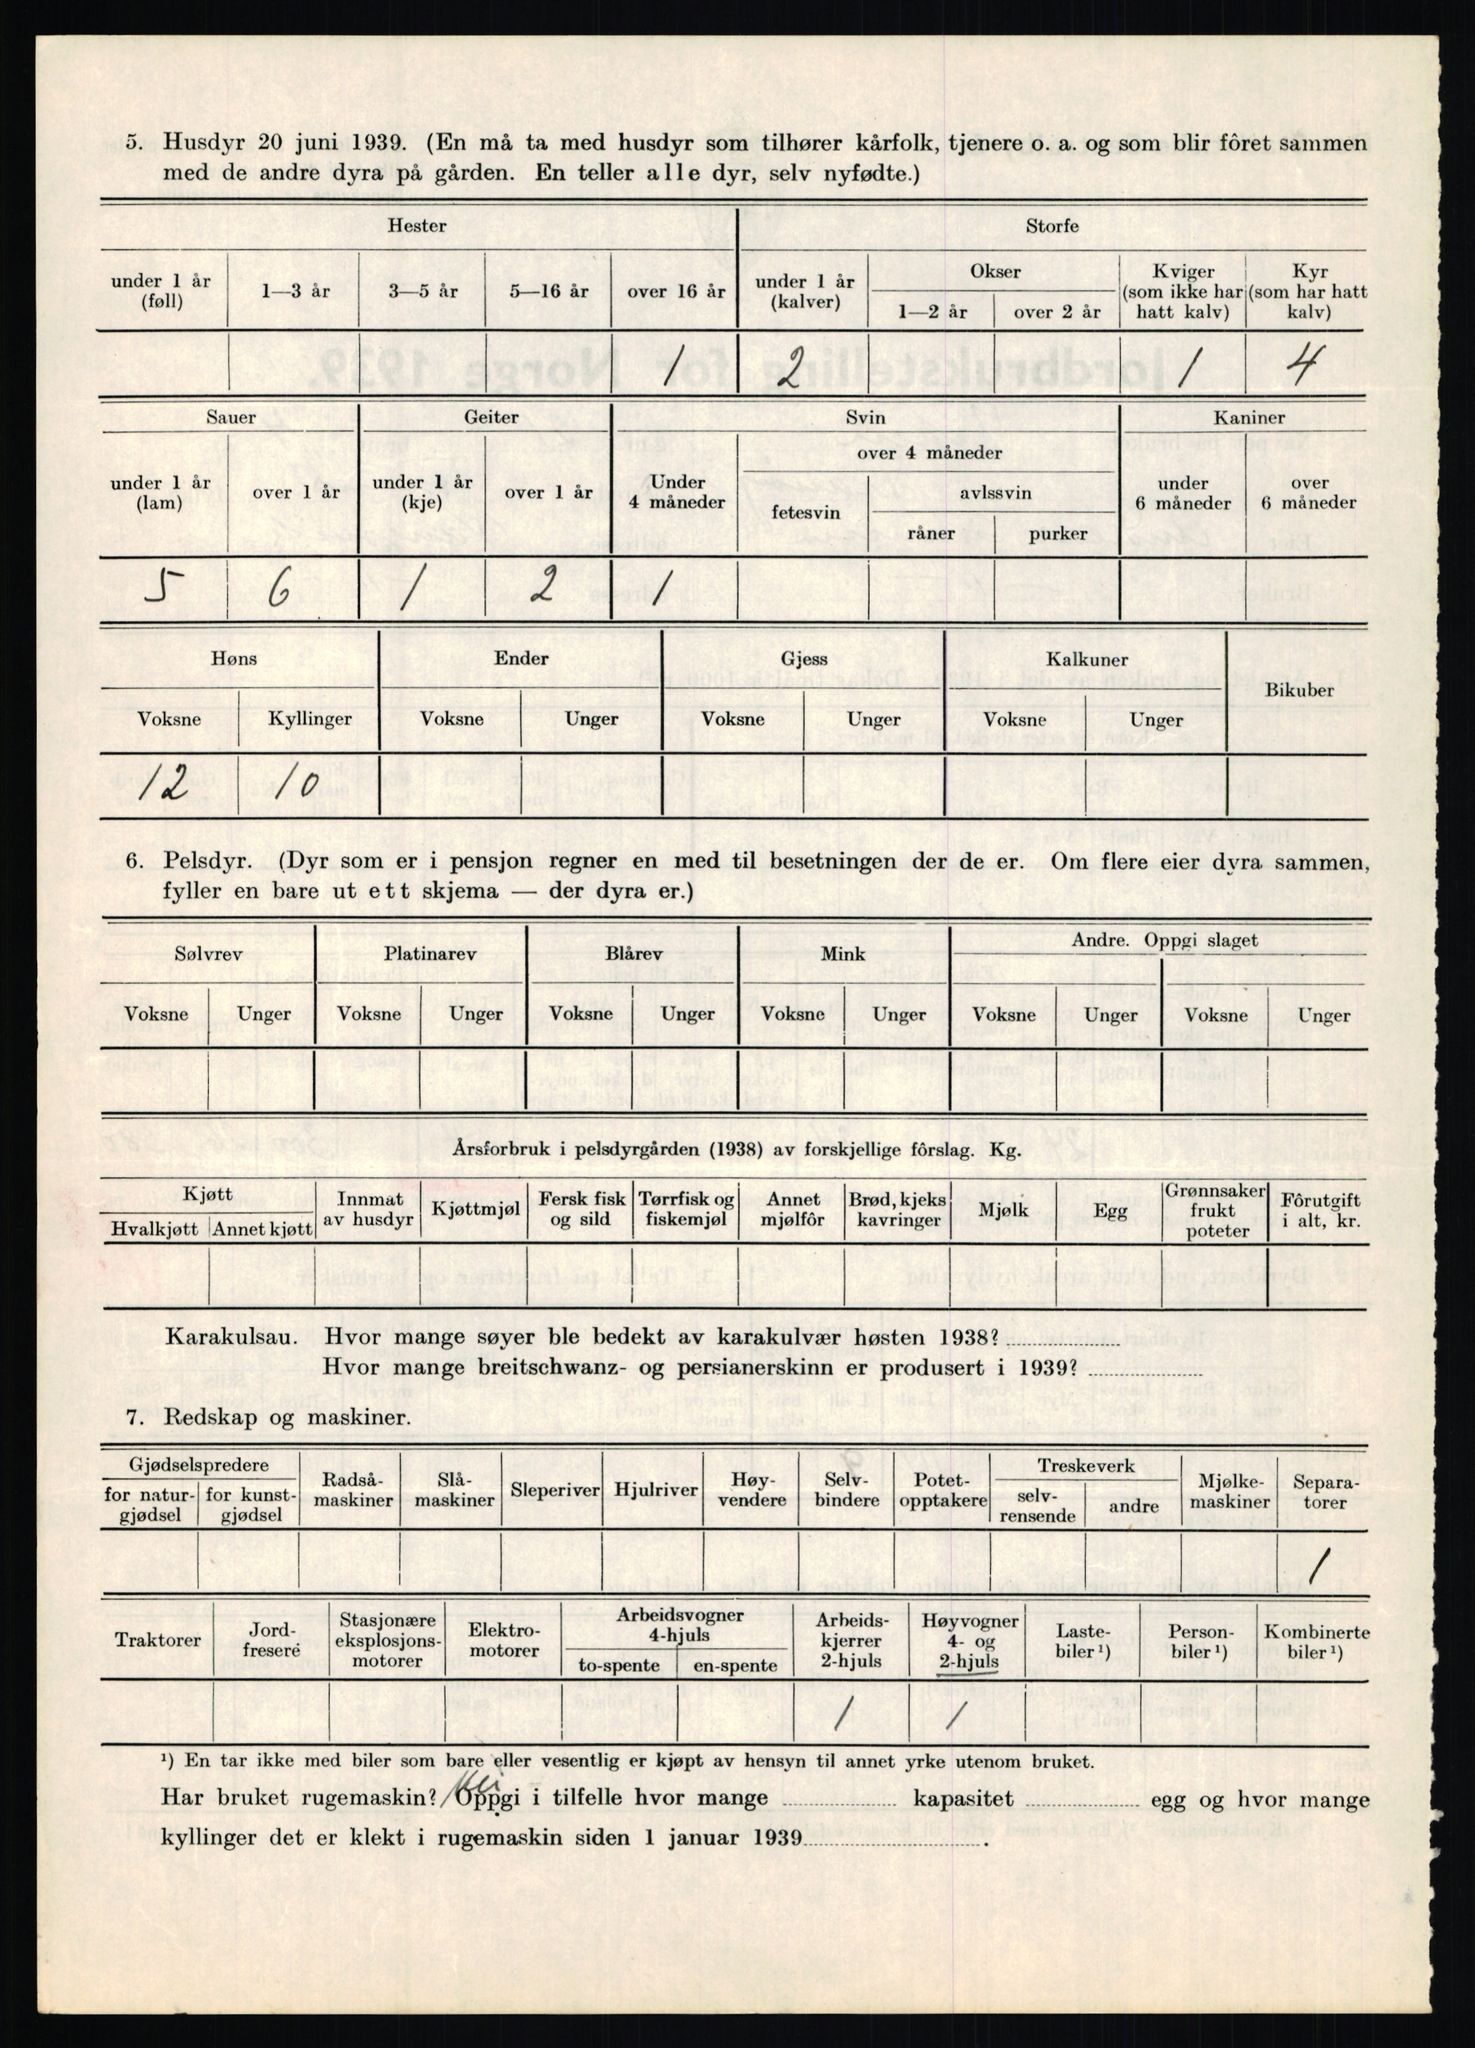 5. Husdyr 20 juni 1939. (En må ta med husdyr som tilhører kårfolk, tjenere o. a. og som blir fôret sammen
med de andre dyra på gården. En teller alle dyr, selv nyfødte.)
Hester Storfe
under 1 år (føll) 1—3 år 3—5 år 5—16 år over 16 år under 1 år (kalver) Okser 1—2 år over 2 år Kviger (som ikke har hatt kalv) Kyr (som har hatt kalv)
1 2 1 4
Sauer Geiter Svin Kaniner
under 1 år (lam) over 1 år under 1 år (kje) over 1 år Under 4 måneder over 4 måneder fetesvin avlssvin råner purker under 6 måneder over 6 måneder
5 6 1 2 1
Høns Ender Gjess Kalkuner Bikuber
Voksne Kyllinger Voksne Unger Voksne Unger Voksne Unger
12 10
6. Pelsdyr. (Dyr som er i pensjon regner en med til besetningen der de er. Om flere eier dyra sammen,
fyller en bare ut ett skjema — der dyra er.)
Sølvrev Platinarev Blårev Mink Andre. Oppgi slaget
Voksne Unger Voksne Unger Voksne Unger Voksne Unger Voksne Unger Voksne Unger
Årsforbruk i pelsdyrgården (1938) av forskjellige fôrslag. Kg.
Kjøtt Hvalkjøtt Annet kjøtt Innmat av husdyr Kjøttmjøl Fersk fisk og sild Tørrfisk og fiskemjøl Annet mjølfôr Brød, kjeks kavringer Mjølk Egg Grønnsaker frukt poteter Fôrutgift i alt, kr.
Karakulsau. Hvor mange søyer ble bedekt av karakulvær høsten 1938?
Hvor mange breitschwanz- og persianerskinn er produsert i 1939?
7. Redskap og maskiner.
Gjødselspredere for naturgjødsel for kunstgjødsel Radså-maskiner Slå-maskiner Sleperiver Hjulriver Høy-vendere Selv-bindere Potet-opptakere Treskeverk selv-rensende andre Mjølke-maskiner Separa-torer
1
Traktorer Jord-fresere Stasjonære eksplosjons-motorer Elektro-motorer Arbeidsvogner 4-hjuls to-spente en-spente Arbeids-kjerrer 2-hjuls Høyvogner 4- og 2-hjuls Laste-biler ¹) Person-biler ¹) Kombinerte biler ¹)
1 1
¹) En tar ikke med biler som bare eller vesentlig er kjøpt av hensyn til annet yrke utenom bruket.
Har bruket rugemaskin? Nei Oppgi i tilfelle hvor mange kapasitet egg og hvor mange
kyllinger det er klekt i rugemaskin siden 1 januar 1939 .